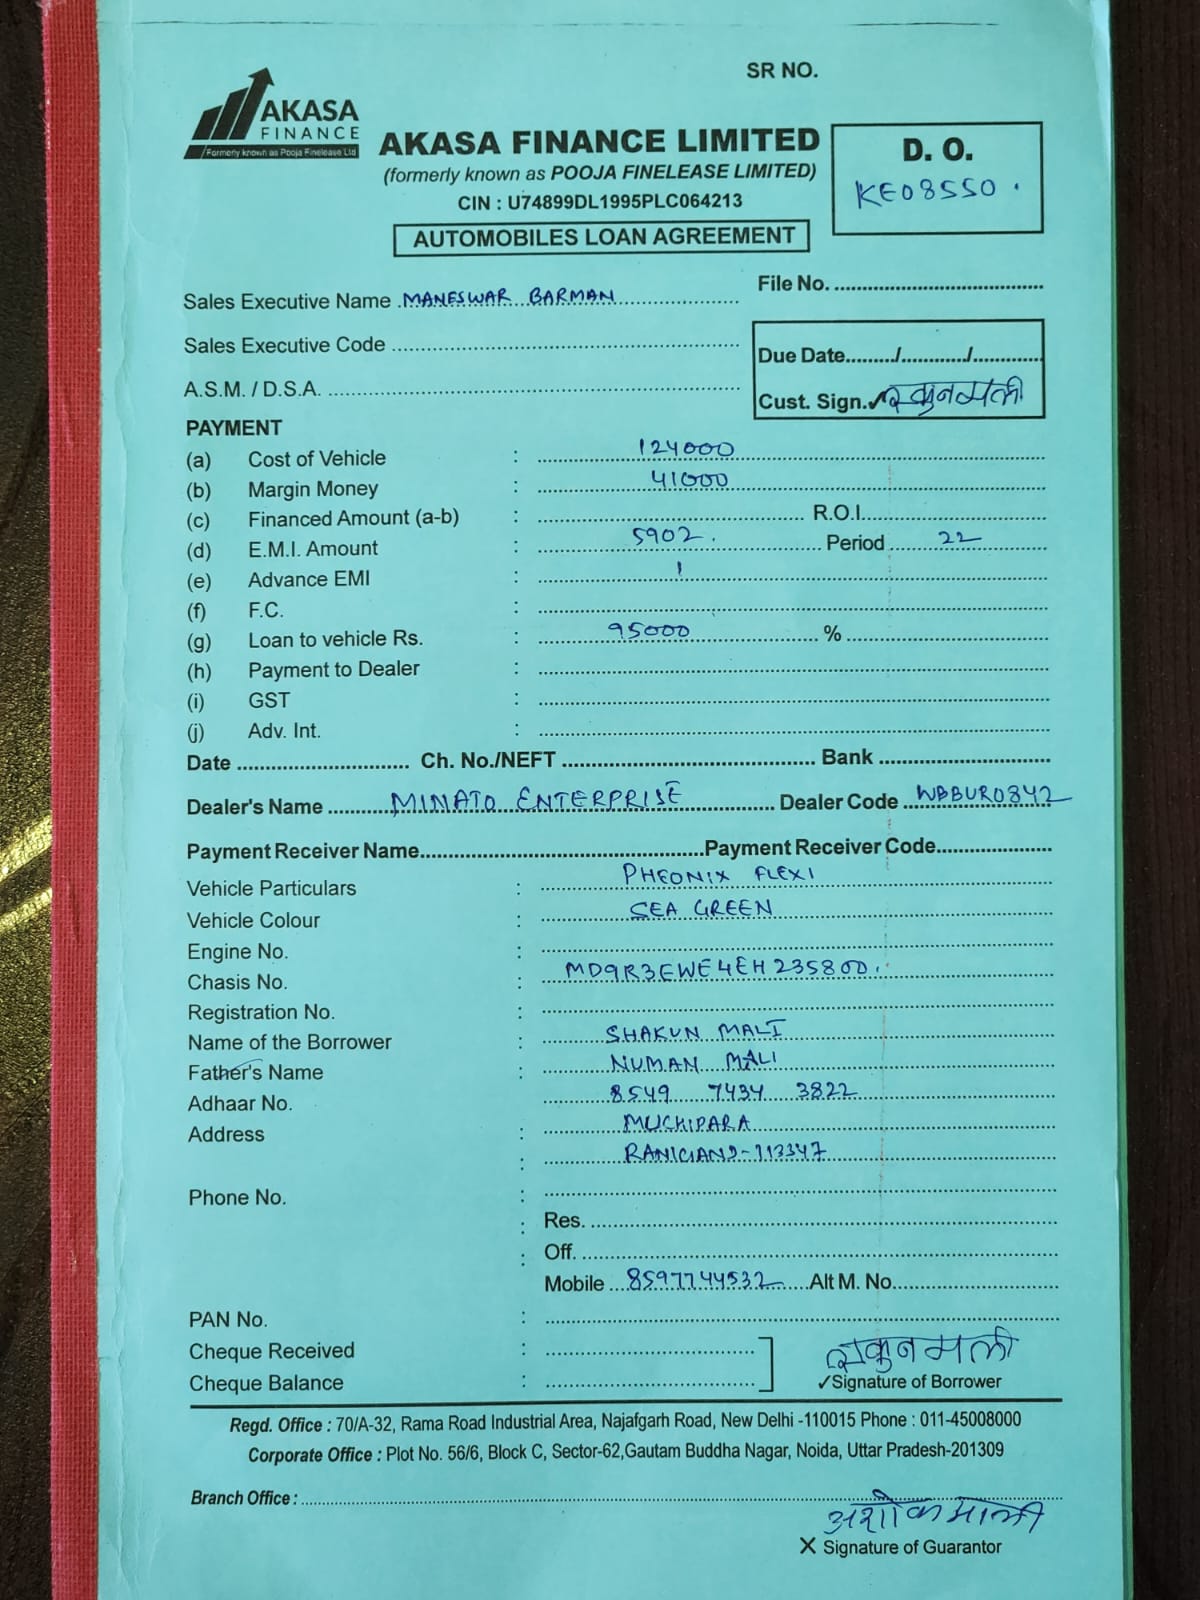 SR NO.
AKASA
FINANCE
Formerly known as Pooja Finelease Ltd
AKASA FINANCE LIMITED
(formerly known as POOJA FINELEASE LIMITED)
CIN : U74899DL1995PLC064213
AUTOMOBILES LOAN AGREEMENT
D. O.
KE08550.
Sales Executive Name MANESWAR BARMAN
File No.
Sales Executive Code
Due Date / /
A.S.M. / D.S.A.
Cust. Sign. शकुन माली
PAYMENT
(a) Cost of Vehicle : 124000
(b) Margin Money : 41000
(c) Financed Amount (a-b) : R.O.I.
(d) E.M.I. Amount : 5902. Period 22
(e) Advance EMI : 1
(f) F.C. :
(g) Loan to vehicle Rs. : 95000 %
(h) Payment to Dealer :
(i) GST :
(j) Adv. Int. :
Date Ch. No./NEFT Bank
Dealer's Name MINATO ENTERPRISE Dealer Code WBBUR0842
Payment Receiver Name Payment Receiver Code
Vehicle Particulars : PHEONIX FLEXI
Vehicle Colour : SEA GREEN
Engine No. :
Chasis No. : MD9R3EWE4EH235800.
Registration No. :
Name of the Borrower : SHAKUN MALI
Father's Name : NUMAN MALI
Adhaar No. 8549 7434 3822
Address : MUCHIPARA
: RANIGANJ-713347
Phone No. :
: Res.
: Off.
Mobile 8597744532 Alt M. No.
PAN No. :
Cheque Received :
Cheque Balance :
शकुन माली
✓Signature of Borrower
Regd. Office : 70/A-32, Rama Road Industrial Area, Najafgarh Road, New Delhi -110015 Phone : 011-45008000
Corporate Office : Plot No. 56/6, Block C, Sector-62,Gautam Buddha Nagar, Noida, Uttar Pradesh-201309
Branch Office :
अशोक माली
X Signature of Guarantor